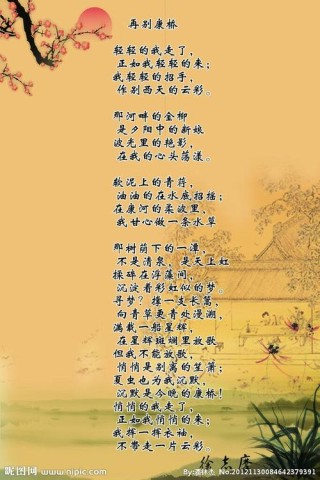 再别康桥
轻轻的我走了,
正如我轻轻的来;
我轻轻的招手,
作别西天的云彩。
那河畔的金柳
是夕阳中的新娘
波光里的艳影,
在我的心头荡漾。
软泥上的青荇,
油油的在水底招摇;
在康河的柔波里,
我甘心做一条水草
那树荫下的一潭,
不是清泉,是天上虹
揉碎在浮藻间,
沉淀着彩虹似的梦。
寻梦?撑一支长篙,
向青草更青处漫溯,
满载一船星辉,
在星辉斑斓里放歌。
但我不能放歌,
悄悄是别离的笙箫;
夏虫也为我沉默,
沉默是今晚的康桥!
悄悄的我走了,
正如我悄悄的来;
我挥一挥衣袖,
不带走一片云彩。
徐志摩
昵图网 www.nipic.com
No.20121130084642379391